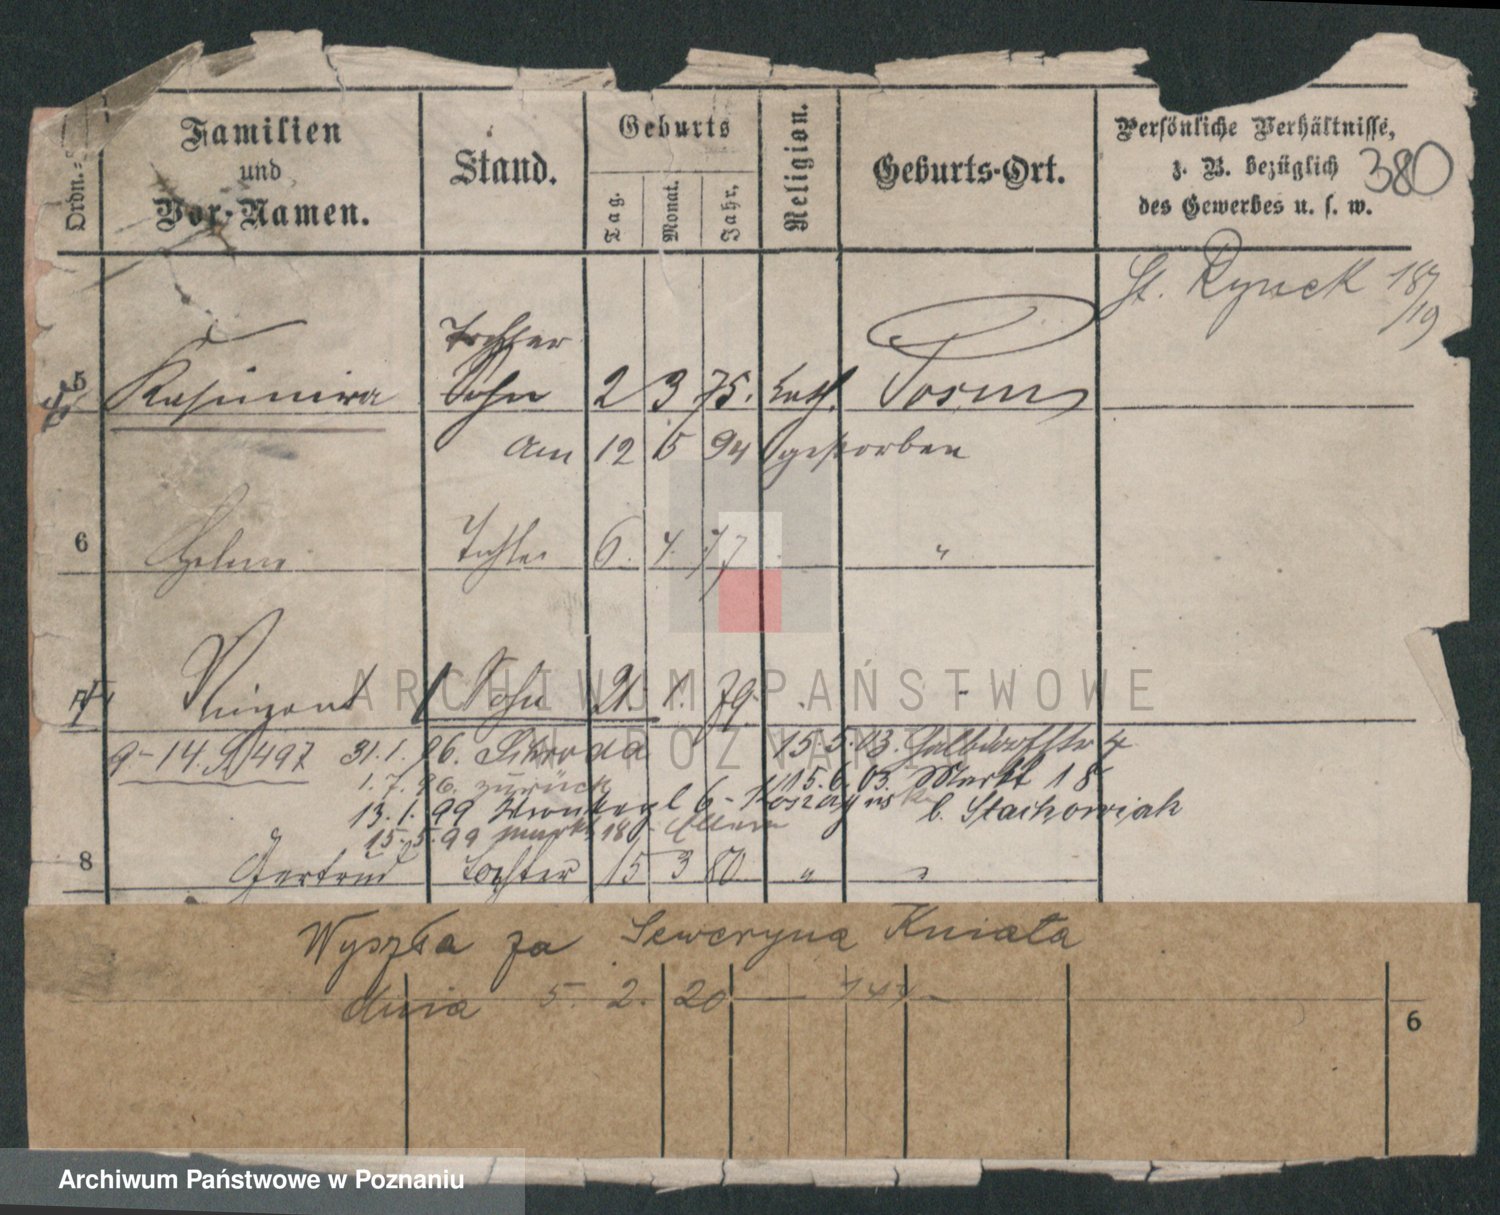 Ordn.=
Familien
und
Vor-Namen.
Stand.
Geburts
Tag.
Monat.
Jahr.
Religion.
Geburts-Ort.
Persönliche Verhältnisse,
z. B. bezüglich
des Gewerbes u. s. w.
380
St. Rynek 18/19
Tochter
5 Kasimira Sohn 2 3 75. kath. Posen
Am 12 5 94 gestorben
6 Helene Tochter 6. 4. 77 "
7 Vinzent Sohn 21. 1. 79.
9-14. 497 31.1.96. Schroda 15.5.03. Halbdorfstr 4
1.7.96. zurück 15.6.03. Markt 18
13.1.99 6- b. Stachowiak
15.5.99 Markt 18 Eltern
8 Gertrud Tochter 15 3 80 " "
Wyszła za Seweryna Kniata
dnia 5. 2. 20
6
ARCHIWUM PAŃSTWOWE
W POZNANIU
Archiwum Państwowe w Poznaniu